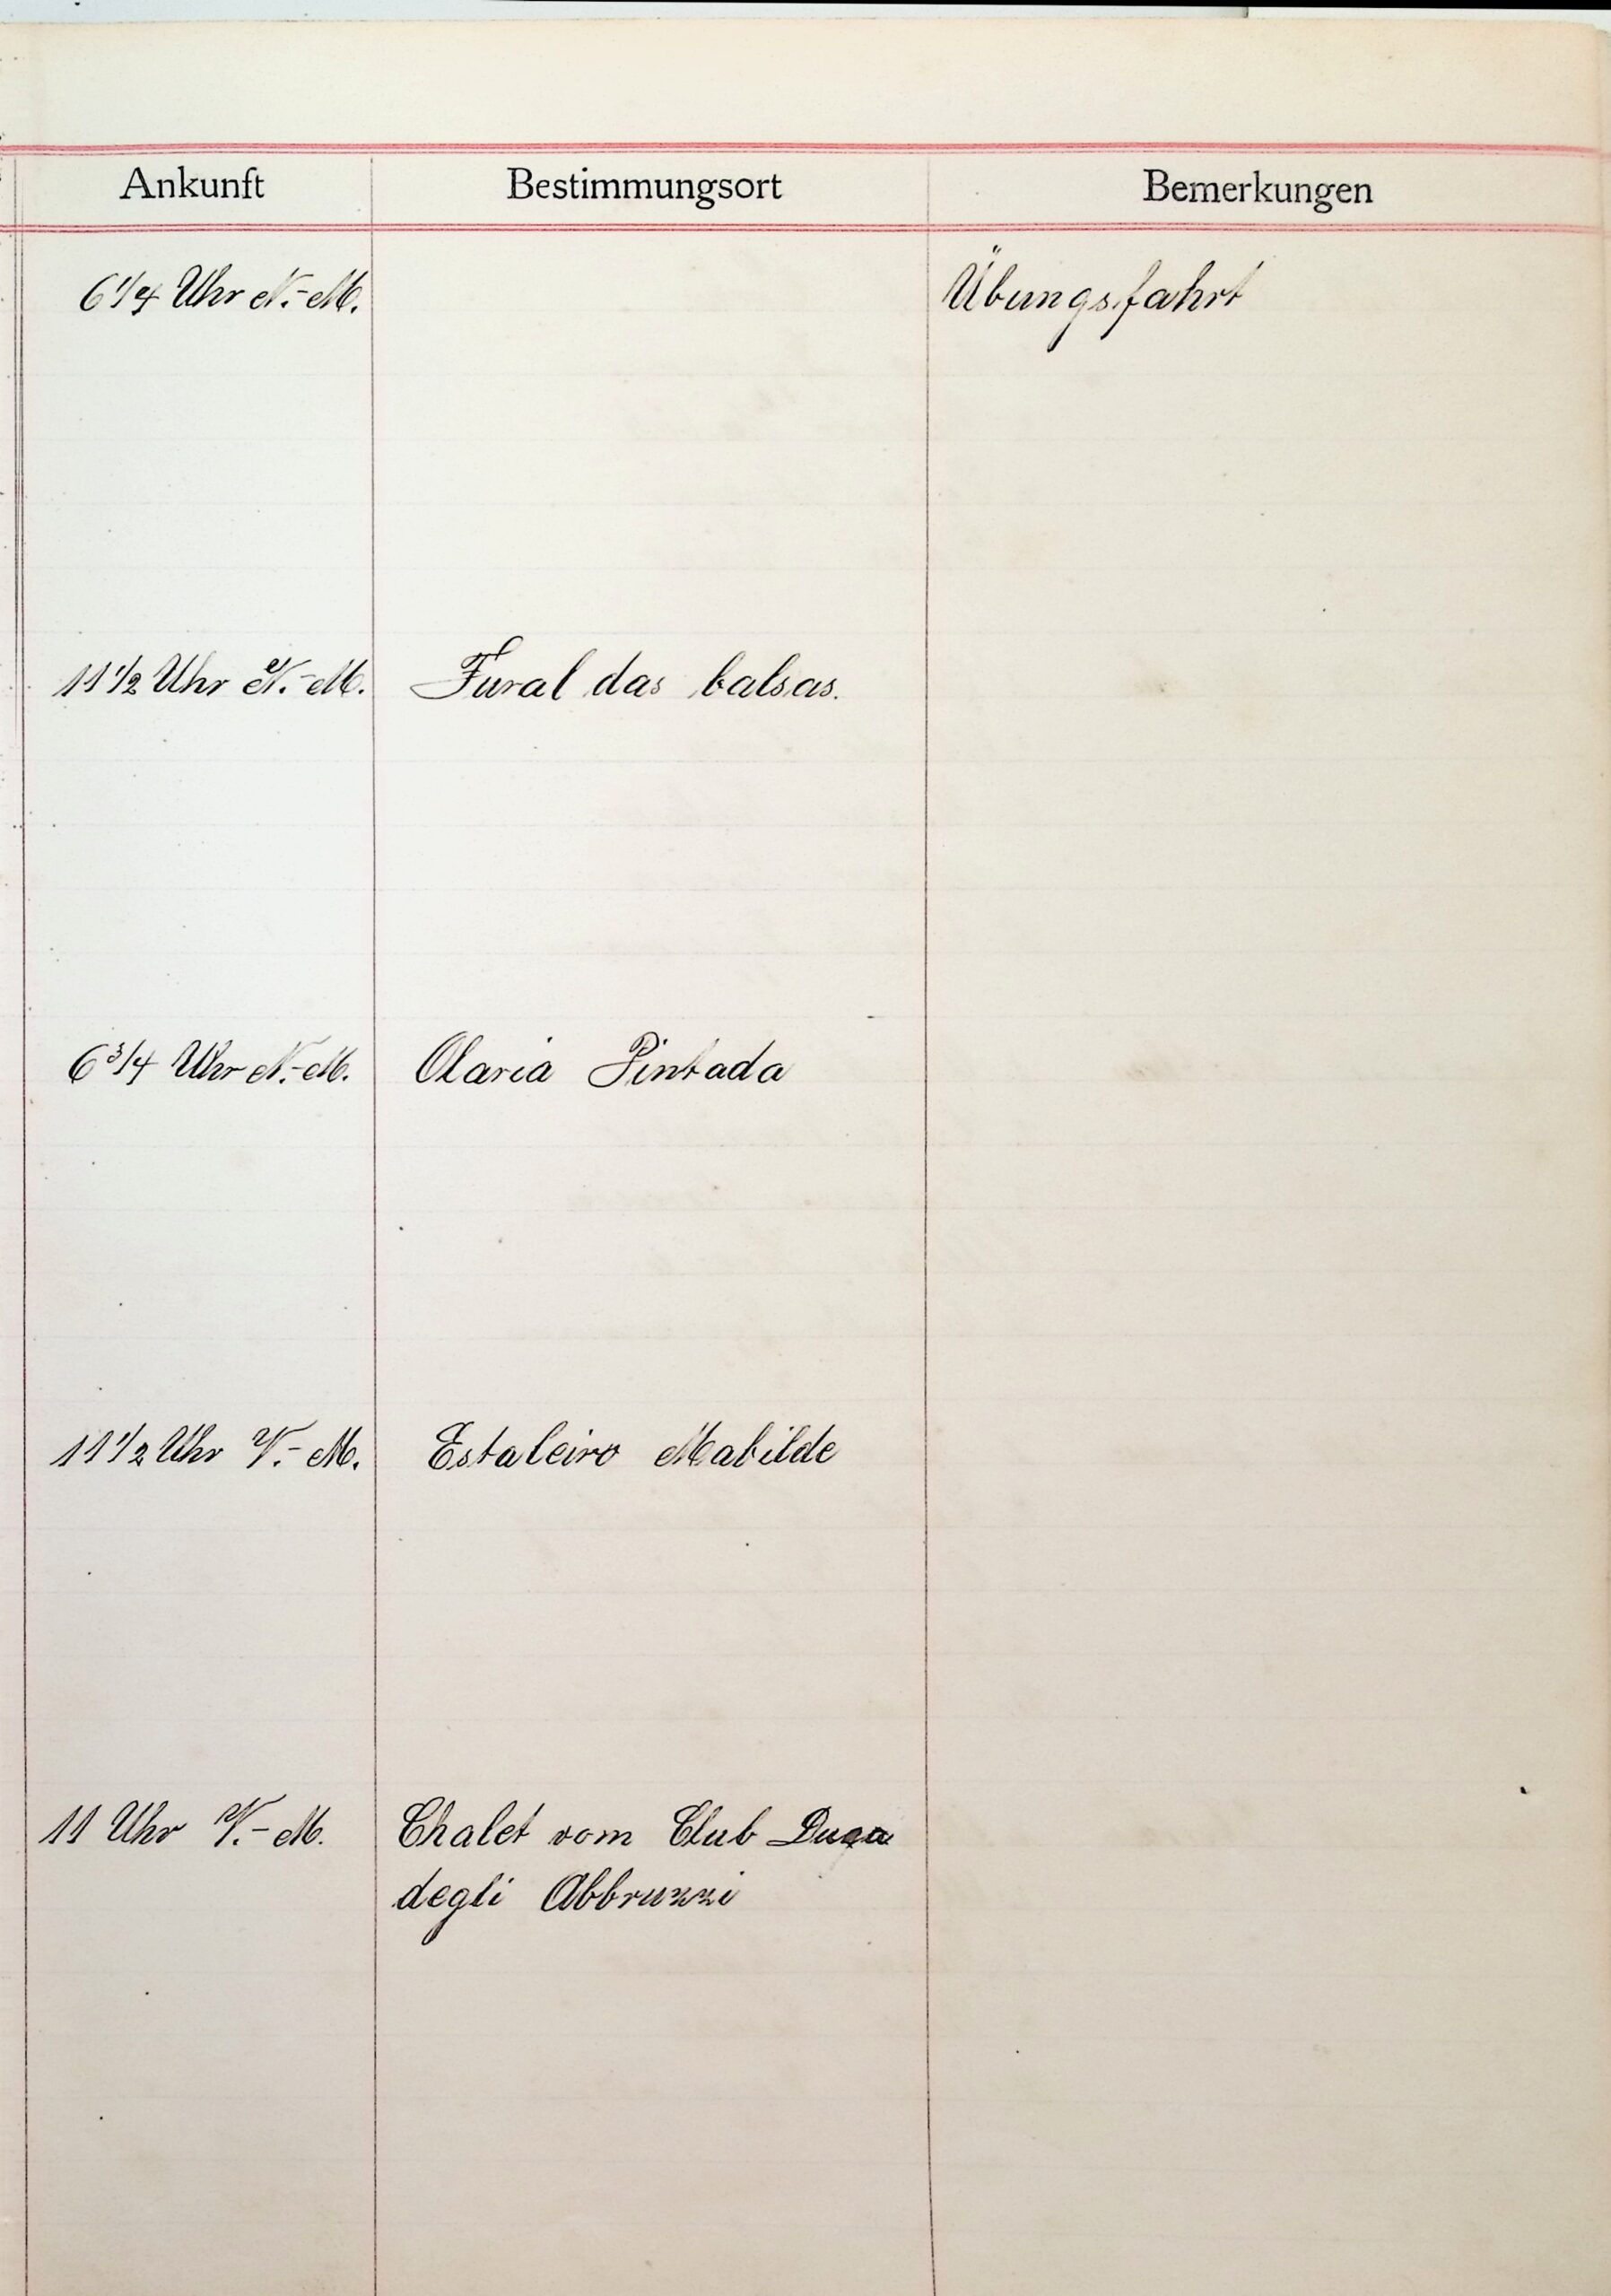 Ankunft Bestimmungsort Bemerkungen
6 1/4 Uhr N.-M. Übungsfahrt
11 1/2 Uhr N.-M. Fural das balsas.
6 3/4 Uhr N.-M. Olaria Pintada
11 1/2 Uhr V.-M. Estaleiro Mabilde
11 Uhr V.-M. Chalet vom Club Duca
degli Abbruzzi